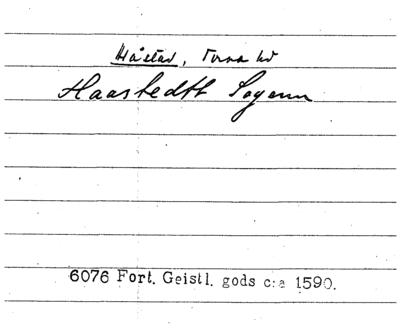 Håstad, Torna hd
Haastedth Sogenn
6076 Fort. Geistl. gods c:a 1590.